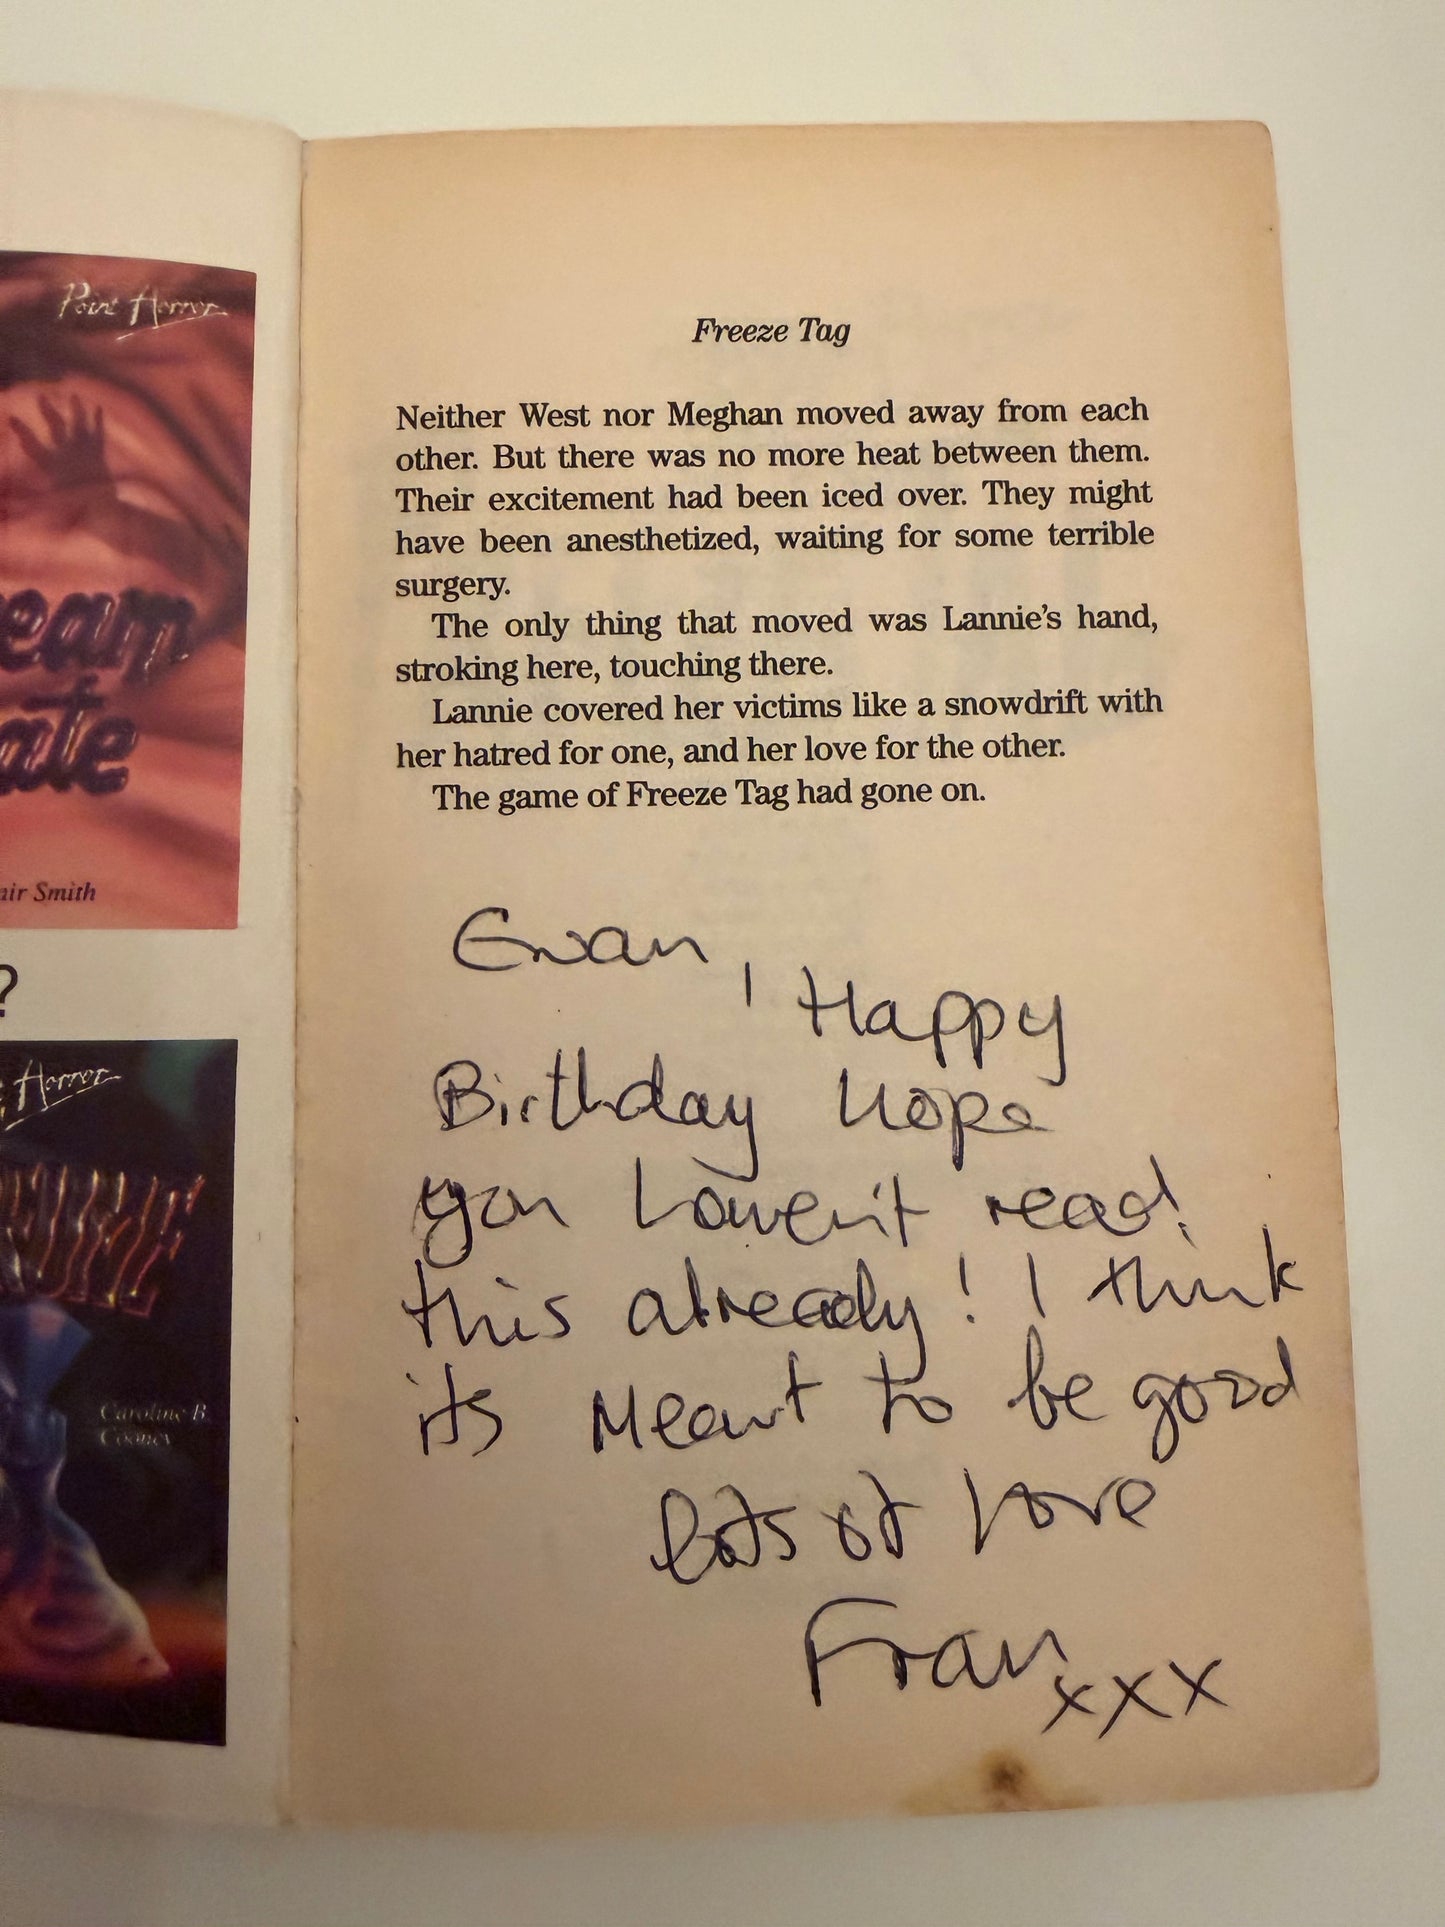 Point Horror
eam
ate
air Smith
?
Horror
Caroline B.
Cooney
Freeze Tag
Neither West nor Meghan moved away from each
other. But there was no more heat between them.
Their excitement had been iced over. They might
have been anesthetized, waiting for some terrible
surgery.
The only thing that moved was Lannie’s hand,
stroking here, touching there.
Lannie covered her victims like a snowdrift with
her hatred for one, and her love for the other.
The game of Freeze Tag had gone on.
Ewan,
Happy
Birthday Hope
you haven't read
this already! I think
its Meant to be good
lots of love
Fran
xxx